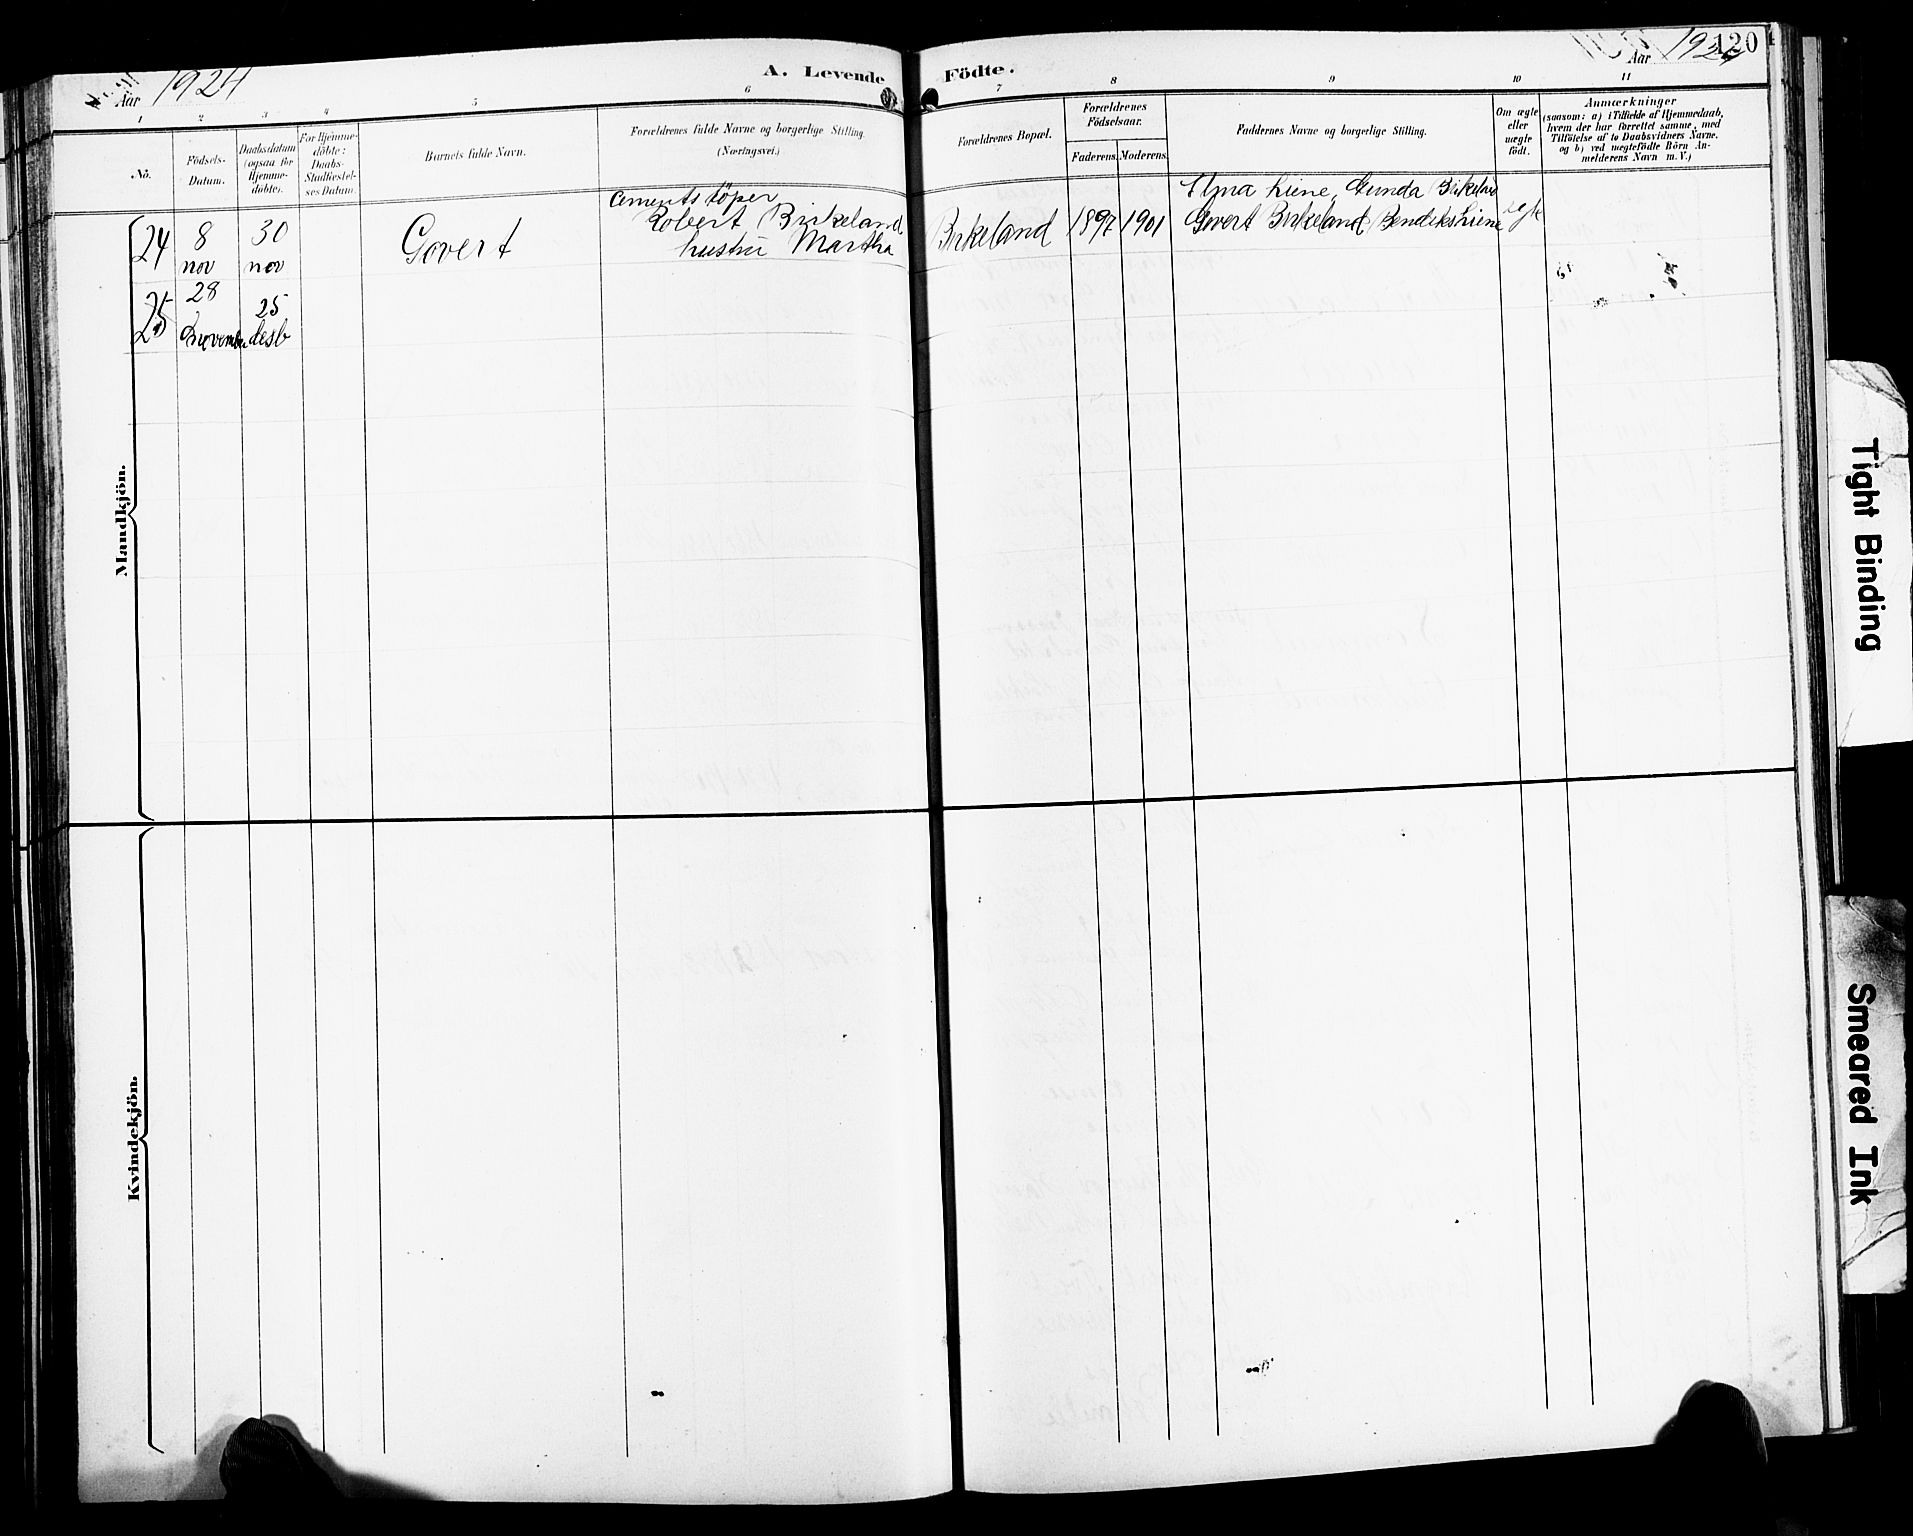 Aar 1924
A. Levende Födte.
Aar 192
120
1 2 3 4 5 6 7 8 9 10 11
No.
Födsels-
Datum.
Daabsdatum
(ogsaa for
Hjemme-
döbte).
For Hjemme-
döbte:
Daabs-
Stadfæstel-
ses Datum.
Barnets fulde Navn.
Forældrenes fulde Navne og borgerlige Stilling.
(Næringsvei.)
Forældrenes Bopæl.
Forældrenes
Födselsaar.
Faderens. Moderens.
Faddernes Navne og borgerlige Stilling.
Om ægte
eller
uægte
födt.
Anmærkninger
(saasom: a) i Tilfælde af Hjemmedaab,
hvem der har forrettet samme, med
Tilföielse af to Daabsvidners Navne.
og b) ved uægtefödte Börn An-
melderens Navn m. V.)
Mandkjön.
24
8
nov
30
nov
Govert
Cementstöper
Robert Birkeland
hustru Martha
Birkeland
1897 1901
Liene, Gunda Birkeland
Govert Birkeland
25
28
november
25
desb
Kvindekjön.
Tight Binding
Smeared Ink